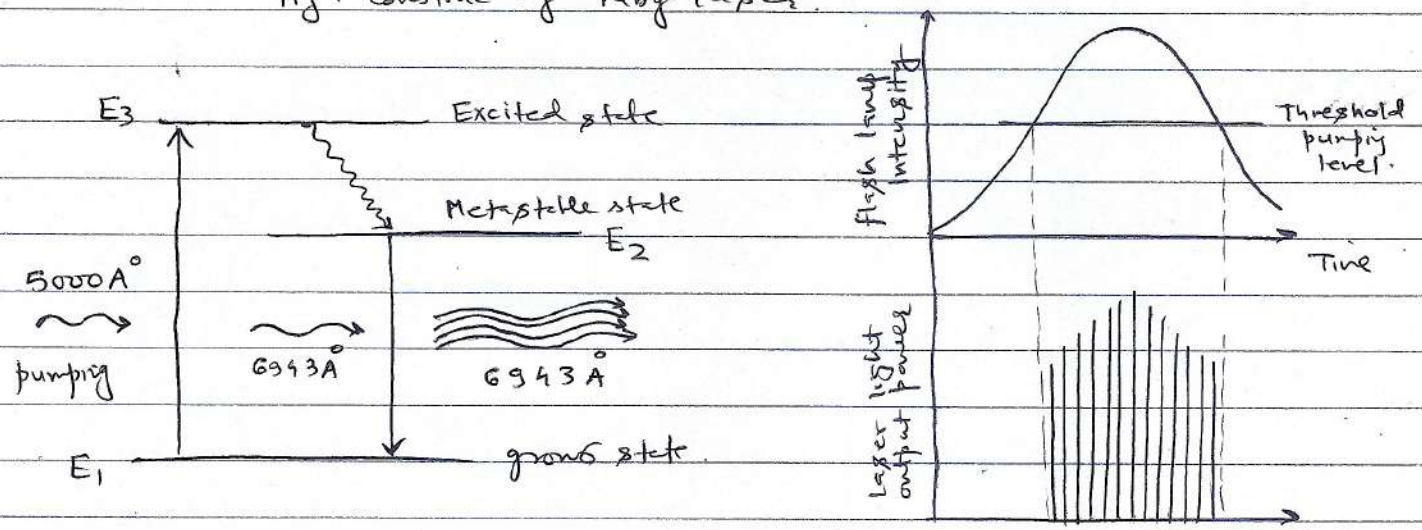 Fig: Construc of ruby laser.
E3 Excited state
Metastable state
E2
5000 A°
pumpig
6943 A°
6943 A°
E1 groud state.
flash lamp
intensity
Threshold
pumpig
level.
Time
Laser light
output power